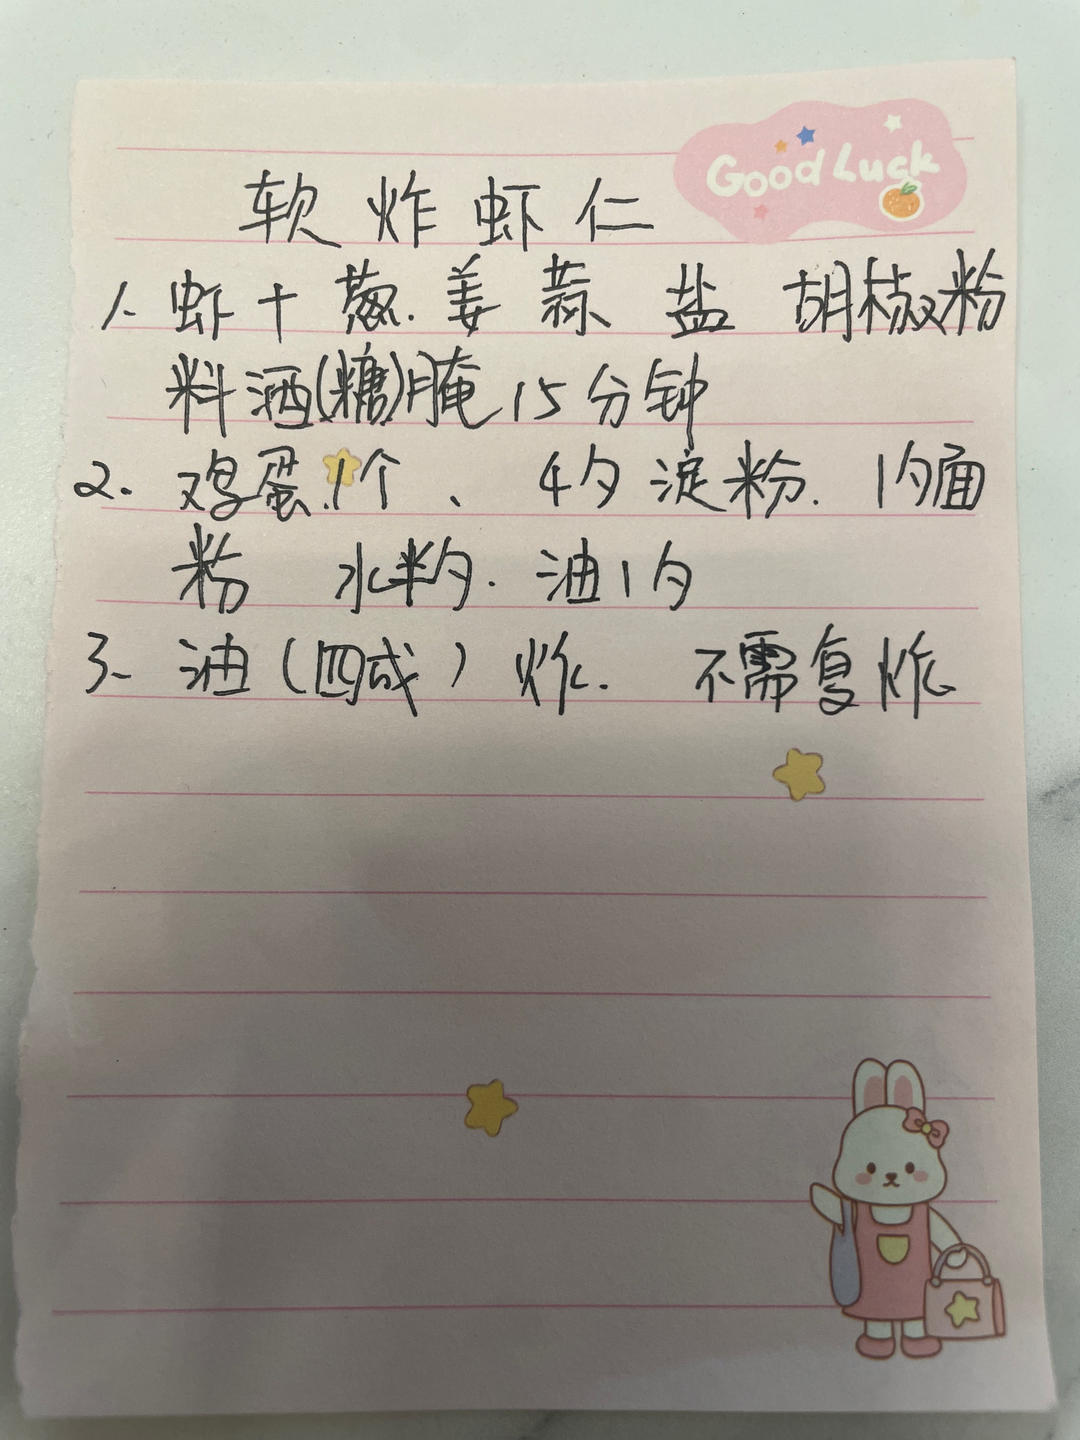 Good Luck
软炸虾仁
1. 虾+葱.姜 蒜 盐 胡椒粉
料酒(糖)腌15分钟
2. 鸡蛋.1个、4勺淀粉.1勺面
粉 水半勺.油1勺
3. 油(四成)炸. 不需复炸